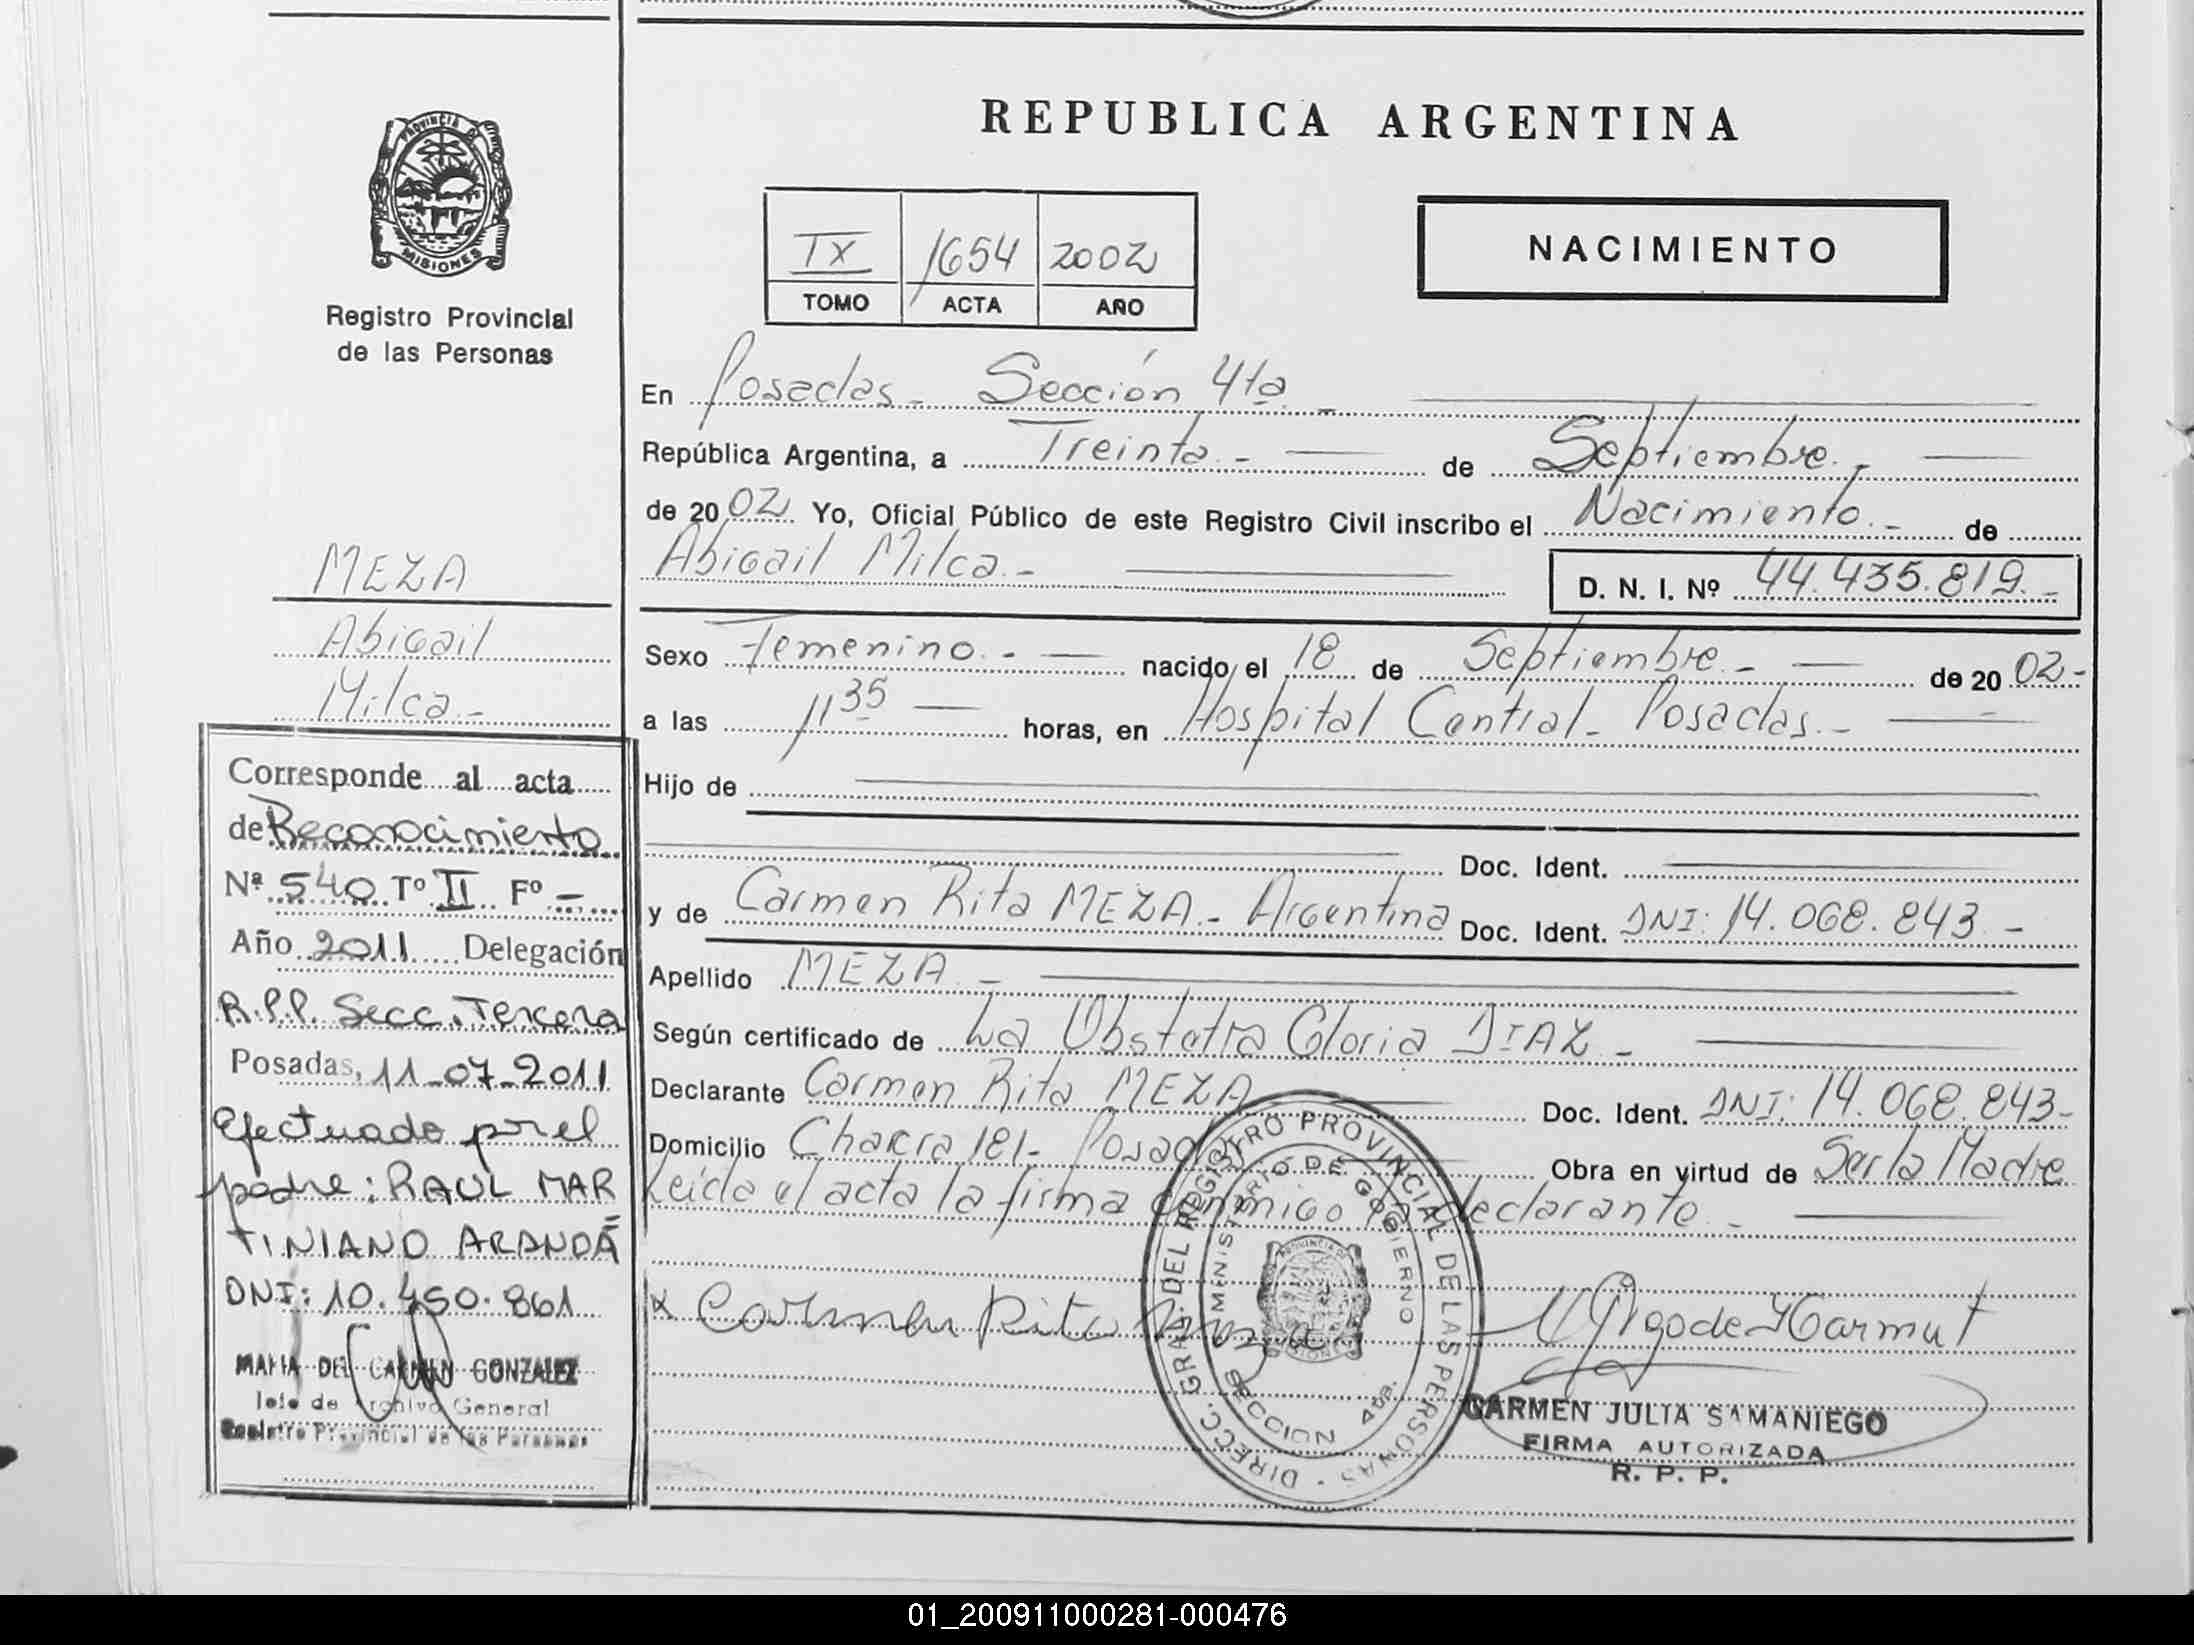 REPUBLICA ARGENTINA
PROVINCIA DE
MISIONES
Registro Provincial
de las Personas
NACIMIENTO
IX 1654 2002
TOMO ACTA AÑO
En Posadas - Sección 4ta -
República Argentina, a Treinta - de Septiembre -
de 2002 Yo, Oficial Público de este Registro Civil inscribo el Nacimiento - de
Abigail Milca - D. N. I. Nº 44.435.819.-
Sexo Femenino - nacido el 18 de Septiembre - de 2002-
a las 11 35 horas, en Hospital Central - Posadas -
Hijo de
Doc. Ident.
y de Carmen Rita MEZA - Argentina Doc. Ident. DNI: 14.068.843 -
Apellido MEZA -
Según certificado de La Obstetra Gloria DIAZ -
Declarante Carmen Rita MEZA Doc. Ident. DNI: 14.068.843-
Domicilio Chacra 181- Posadas Obra en virtud de Ser la Madre
Leída el acta la firma conmigo la declarante -
x Carmen Rita Meza
CARMEN JULIA SAMANIEGO
FIRMA AUTORIZADA
R. P. P.
DIRECC. GRAL. DEL REGISTRO PROVINCIAL DE LAS PERSONAS
MINISTERIO DE GOBIERNO
SECCION 4ta.
MEZA
Abigail
Milca -
Corresponde al acta
de Reconocimiento
Nª 540 Tº II Fº -
Año 2011 Delegación
R.P.P. Secc. Tercera
Posadas, 11-07-2011
Efectuado por el
padre: RAUL MAR
TINIANO ARANDA=
DNI: 10.450.861
MARIA DEL CARMEN GONZALEZ
Jefe de Archivo General
Registro Provincial de las Personas
01_200911000281-000476